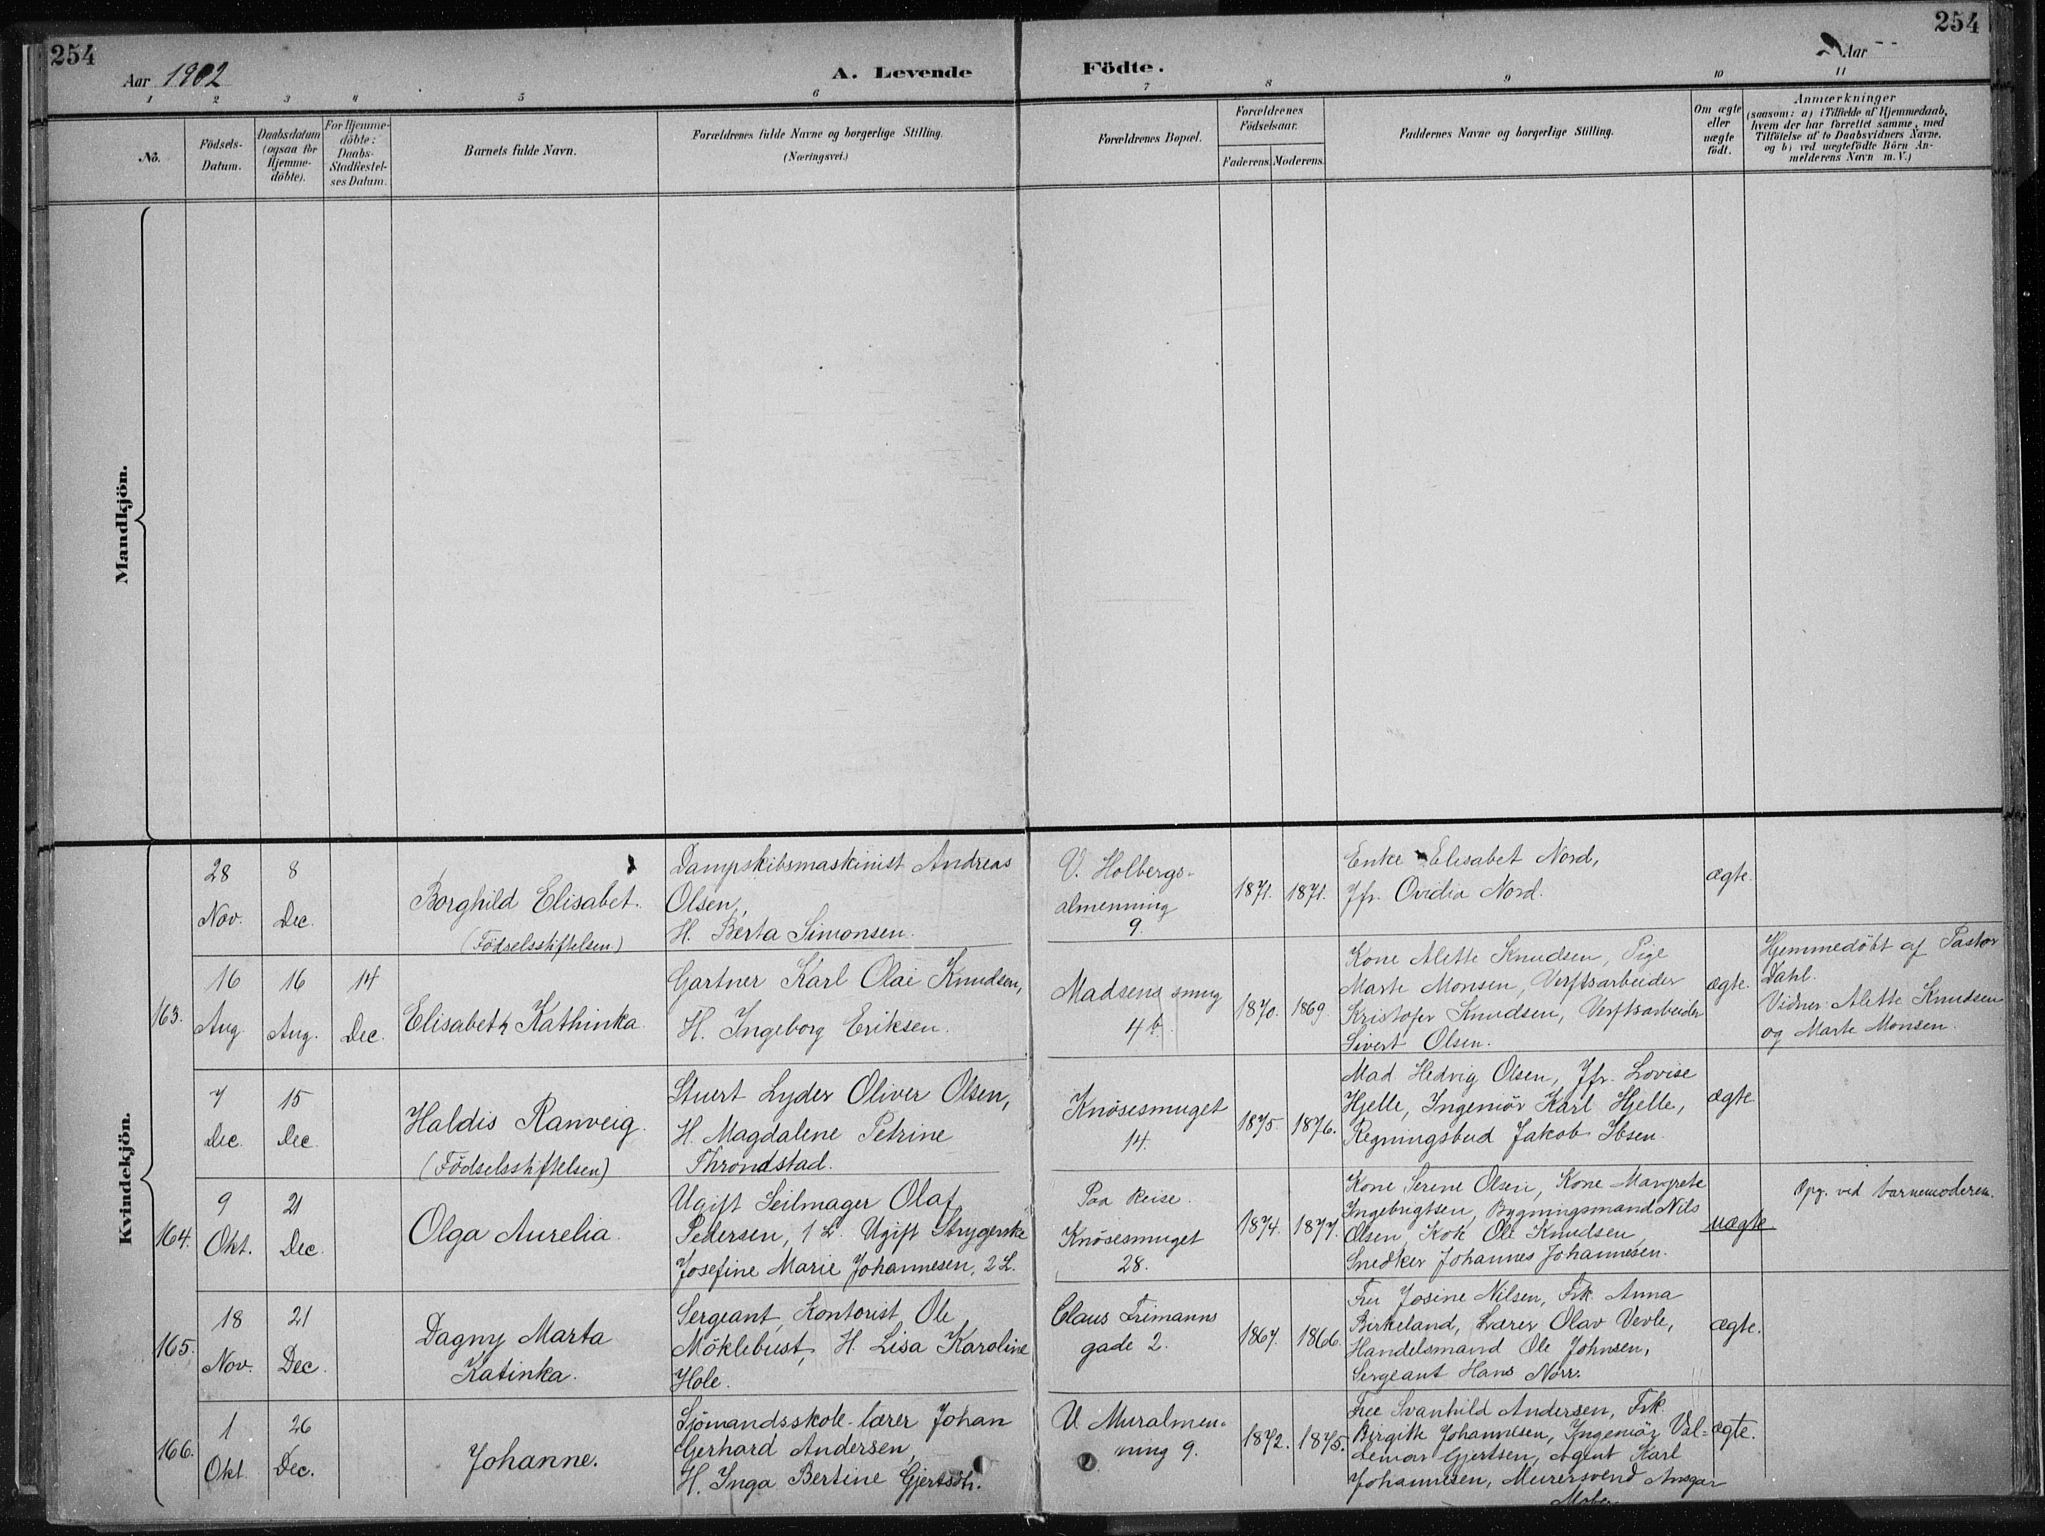 254
254
Aar 1902
A. Levende
Födte.
Aar
1 2 3 4 5 6 7 8 9 10 11
No.
Födsels-
Datum.
Daabsdatum
(ogsaa for
Hjemme-
döbte).
For Hjemme-
döbte:
Daabs-
Stadfæstel-
ses Datum.
Barnets fulde Navn.
Forældrenes fulde Navne og borgerlige Stilling.
(Næringsvei.)
Forældrenes Bopæl.
Forældrenes
Födselsaar.
Faderens.
Moderens.
Faddernes Navne og borgerlige Stilling.
Om ægte
eller
uægte
födt.
Anmærkninger
(saasom: a) i Tilfælde af Hjemmedaab,
hvem der har forrettet samme, med
Tilföielse af to Daabsvidners Navne,
og b) ved uægtefödte Börn An-
melderens Navn m. V.)
Mandkjön.
Kvindekjön.
28
Nov.
8
Dec.
Borghild Elisabet.
(Födselsstiftelsen)
Dampskibsmaskinist Andreas
Olsen,
H. Berta Simonsen.
V. Holbergs-
almenning
9.
1871.
1871.
Enke Elisabet Nord,
Jfr. Ovidia Nord.
ægte.
163.
16
Aug
16
Aug.
14
Dec.
Elisabeth Kathinka.
Gartner Karl Olai Knudsen,
H. Ingeborg Eriksen.
Madsens smug
4 b.
1870.
1869.
Kone Alette Knudsen, Pige
Marte Monsen, Verftsarbeider
Kristofer Knudsen, Verftsarbeider
Sivert Olsen.
ægte.
Hjemmedöbt af Pastor
Dahl.
Vidner: Alette Knudsen
og Marte Monsen.
7
Dec.
15
Dec.
Haldis Ranveig.
(Födselsstiftelsen)
Stuert Lyder Oliver Olsen,
H. Magdalene Petrine
Throndstad.
Knösesmuget
14.
1875.
1876.
Mad. Hedvig Olsen, Jfr. Lovise
Hjelle, Ingeniör Karl Hjelle,
Regningsbud Jakob Ibsen.
ægte
164.
9
Okt.
21
Dec.
Olga Aurelia.
Ugift Seilmager Olaf
Pedersen, 1 L. Ugift Strygerske
Josefine Marie Johannesen, 2 L.
Paa Reise.
Knösesmuget
28.
1874.
1877.
Kone Serene Olsen, Kone Margrete
Ingebrigtsen, Bygningsmand Nils
Olsen, Kok Ole Knudsen,
Snedker Johannes Johannesen.
uægte
Opg. ved barnemoderen.
165.
18
Nov.
21
Dec.
Dagny Marta
Katinka.
Sergeant, Kontorist Ole
Möklebust, H. Lisa Karoline
Hole.
Claus Frimanns
gade 2.
1867.
1866.
Fru Josine Nilsen, Frk. Anna
Birkeland, Lærer Olav Vevle,
Handelsmand Ole Johnsen,
Sergeant Hans Nörr.
ægte.
166.
1
Okt.
26
Dec.
Johanne.
Sjömandsskole-lærer Johan
Gerhard Andersen,
H. Inga Bertine Gjertsen.
V Muralmen-
ning 9.
1872.
1875.
Fru Svanhild Andersen, Frk.
Birgitte Johannesen, Ingeniör Val-
demar Gjertsen, Agent Karl
Johannesen, Murersvend Ansgar
ægte.